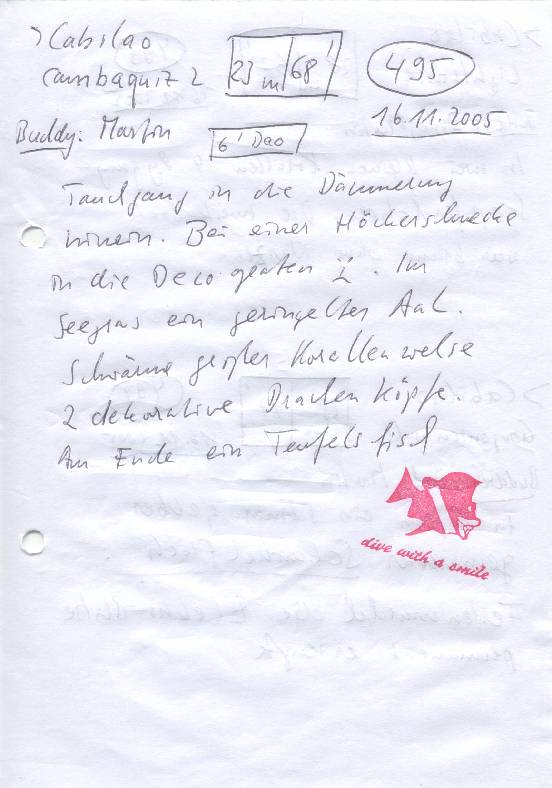 > Cabilao
Cambaquiz 2
23 m 68'
495
16.11.2005
Buddy: Martin
6' Deo
Tauchgang in die Dämmerung
hinein. Bei einer Höckerschnecke
in die Deco geraten
. Im
Seegras ein geringelter Aal.
Schwärme großer Korallenwelse
2 dekorative Drachenköpfe.
Am Ende ein Teufelsfisch
dive with a smile